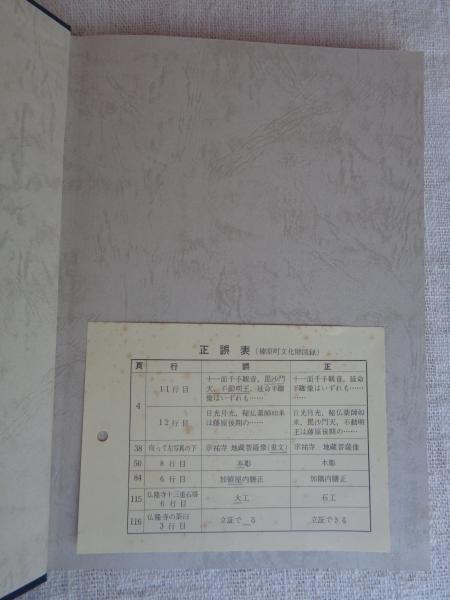 正誤表(榛原町文化財図録)
頁 行 誤 正
4 11行目 十一面千手観音、毘沙門 十一面千手観音、延命
天、不動明王、延命不動 像はいずれも……
像はいずれも……
12行目 日光月光、秘仏薬師如来 日光月光、秘仏薬師如
は藤原後期の…… 来、毘沙門天、不動明
王は藤原後期の……
38 向って左写真の下 宗祐寺 地蔵菩薩像(重文) 宗祐寺 地蔵菩薩像
50 8行目 木彫
84 6行目
115 仏隆寺十三重石塔 大工 石工
6行目
116 仏隆寺の茶臼 立証で_る 立証できる
3行目